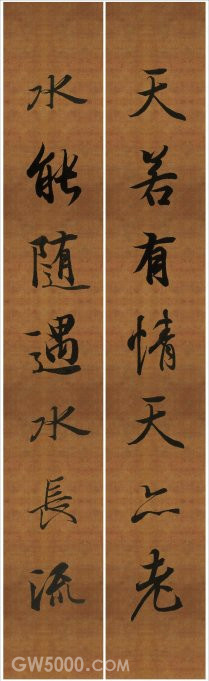 天若有情天亦老
水能随遇水長流
GW5000.com